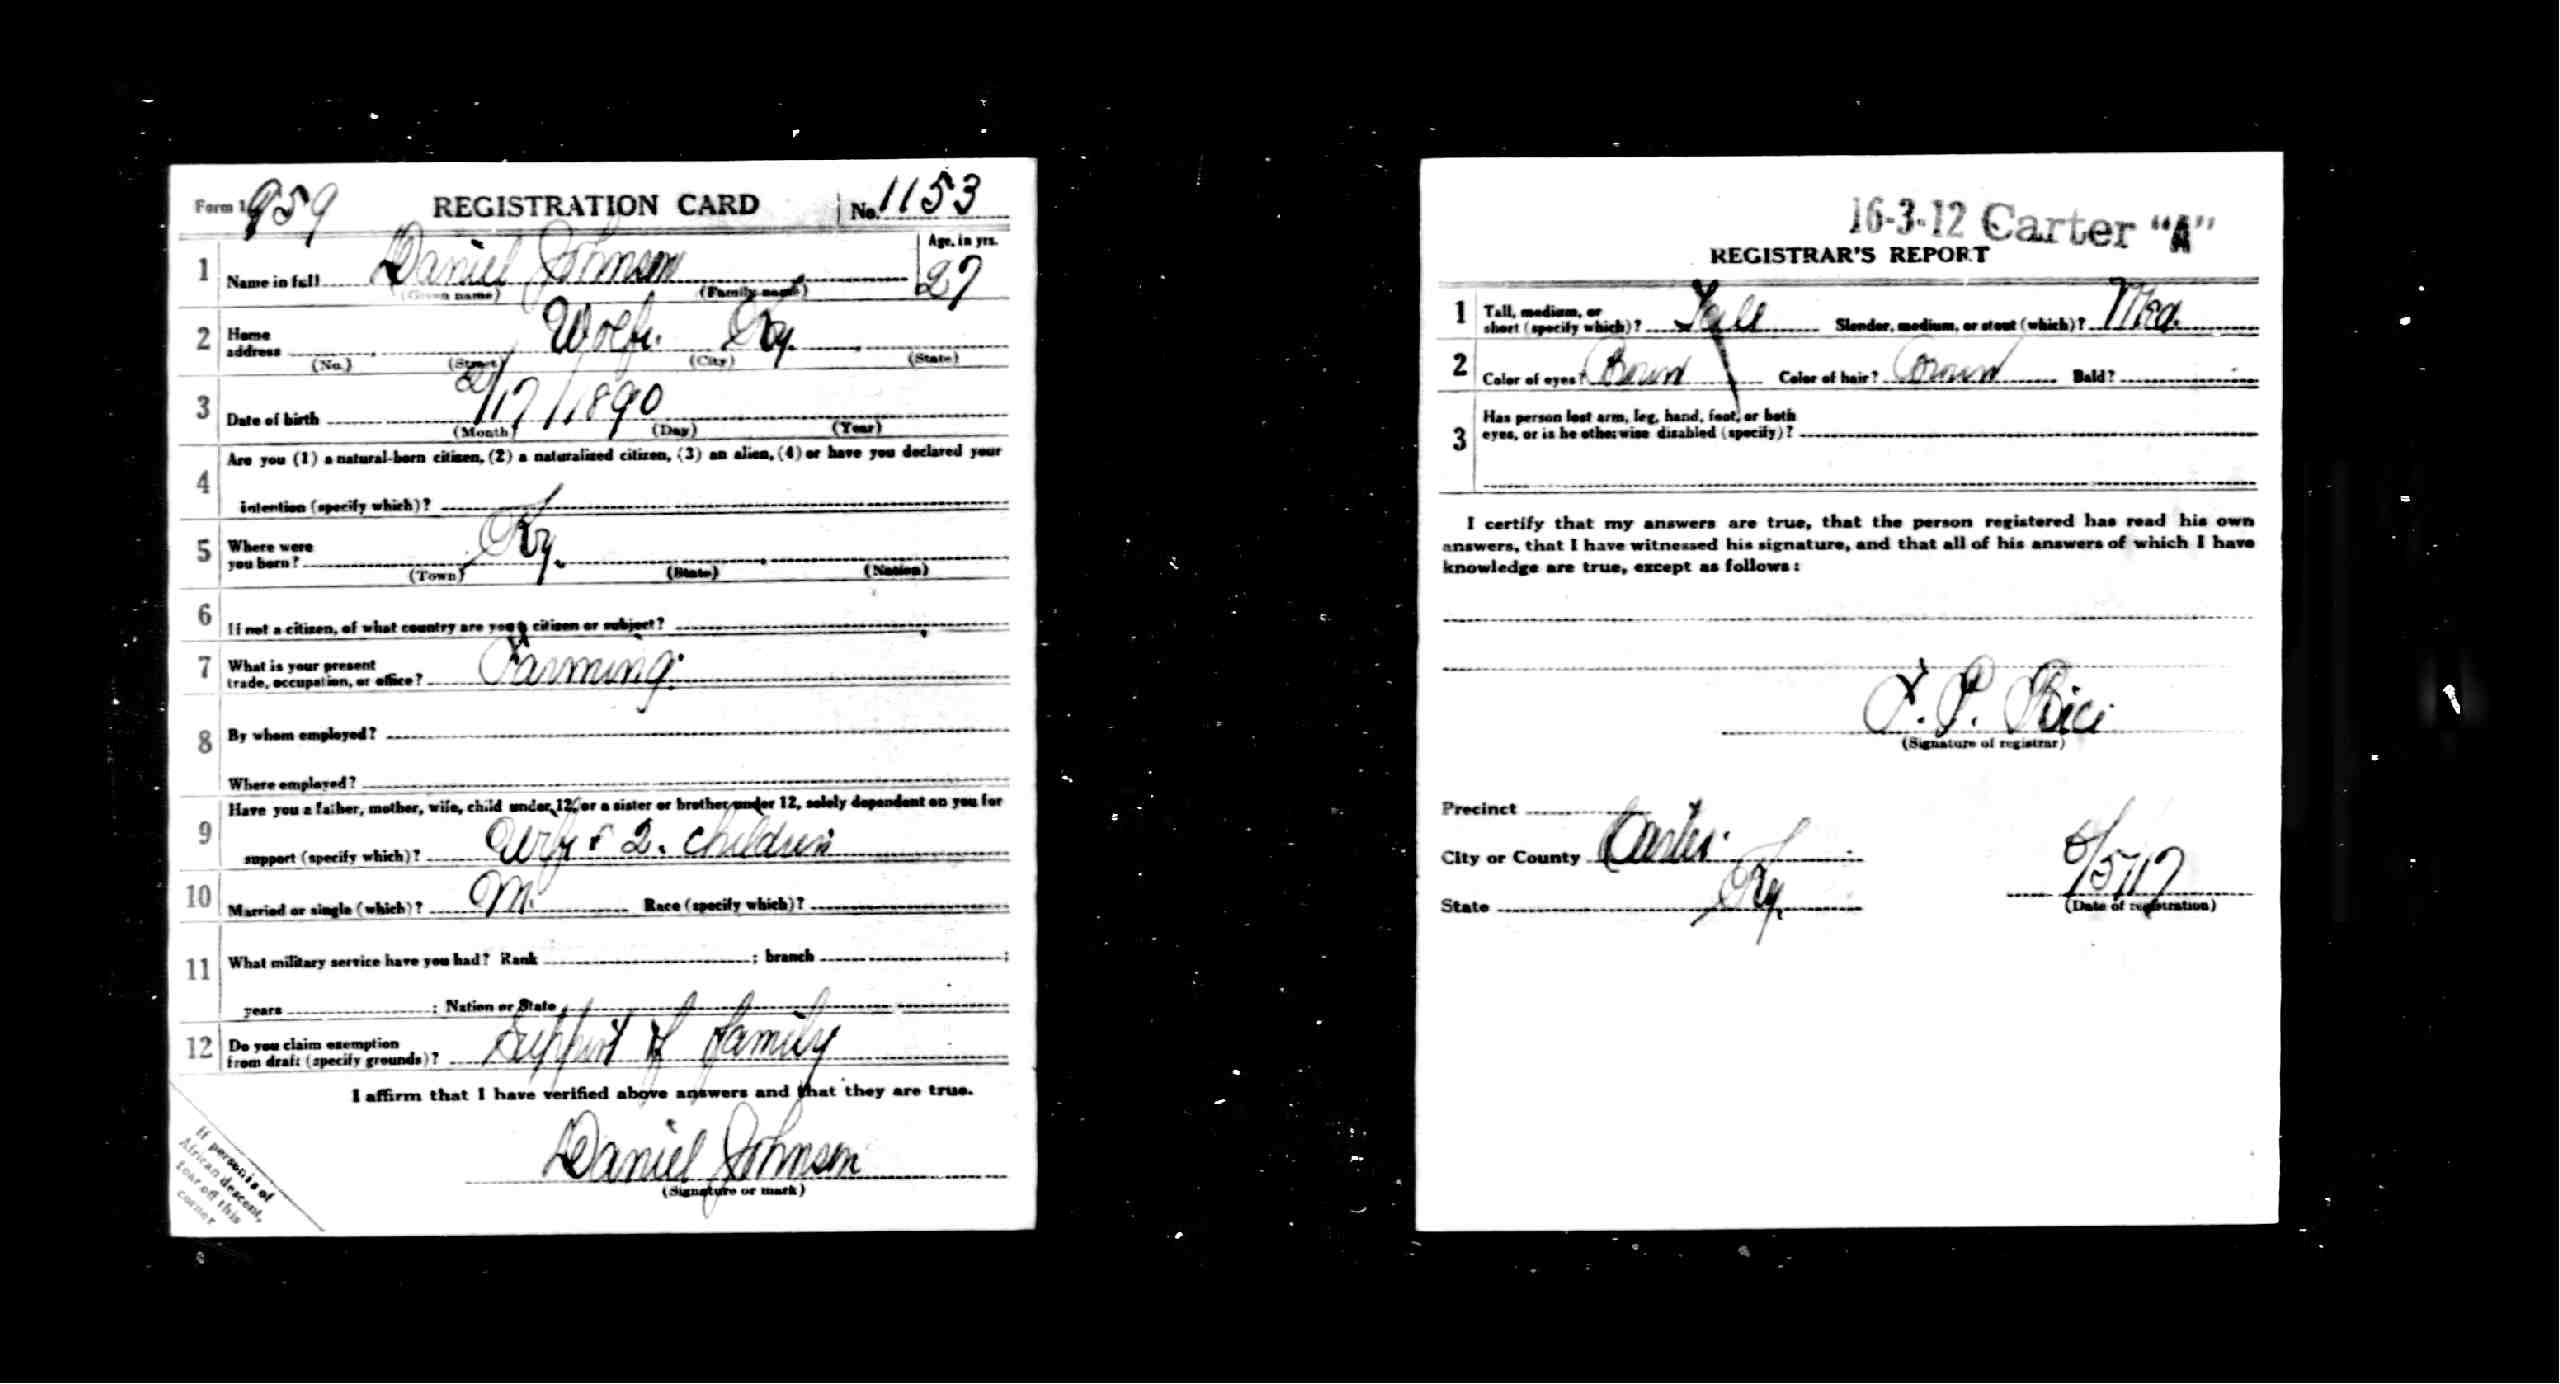 Form 1 959 REGISTRATION CARD No. 1153
1 Name in full Daniel Johnson Age, in yrs. 27
(Given name) (Family name)
2 Home address Wolf. Ky.
(No.) (Street) (City) (State)
3 Date of birth 2/17/1890
(Month) (Day) (Year)
4 Are you (1) a natural-born citizen, (2) a naturalized citizen, (3) an alien, (4) or have you declared your
intention (specify which)?
5 Where were you born? Ky.
(Town) (State) (Nation)
6 If not a citizen, of what country are you a citizen or subject?
7 What is your present
trade, occupation, or office? Farming.
8 By whom employed?
Where employed?
9 Have you a father, mother, wife, child under 12, or a sister or brother under 12, solely dependent on you for
support (specify which)? Wife & 2. children
10 Married or single (which)? M. Race (specify which)?
11 What military service have you had? Rank ; branch ;
years ; Nation or State
12 Do you claim exemption
from draft (specify grounds)? Support of family
I affirm that I have verified above answers and that they are true.
Daniel Johnson
(Signature or mark)
If person is of
African descent,
tear off this
corner
16-3-12 Carter "A"
REGISTRAR'S REPORT
1 Tall, medium, or
short (specify which)? Tall Slender, medium, or stout (which)? Med.
2 Color of eyes? Brown Color of hair? Brown Bald?
3 Has person lost arm, leg, hand, foot, or both
eyes, or is he otherwise disabled (specify)?
I certify that my answers are true, that the person registered has read his own
answers, that I have witnessed his signature, and that all of his answers of which I have
knowledge are true, except as follows:
F. P. Rice
(Signature of registrar)
Precinct
City or County Carter.
State Ky. 6/5/17
(Date of registration)